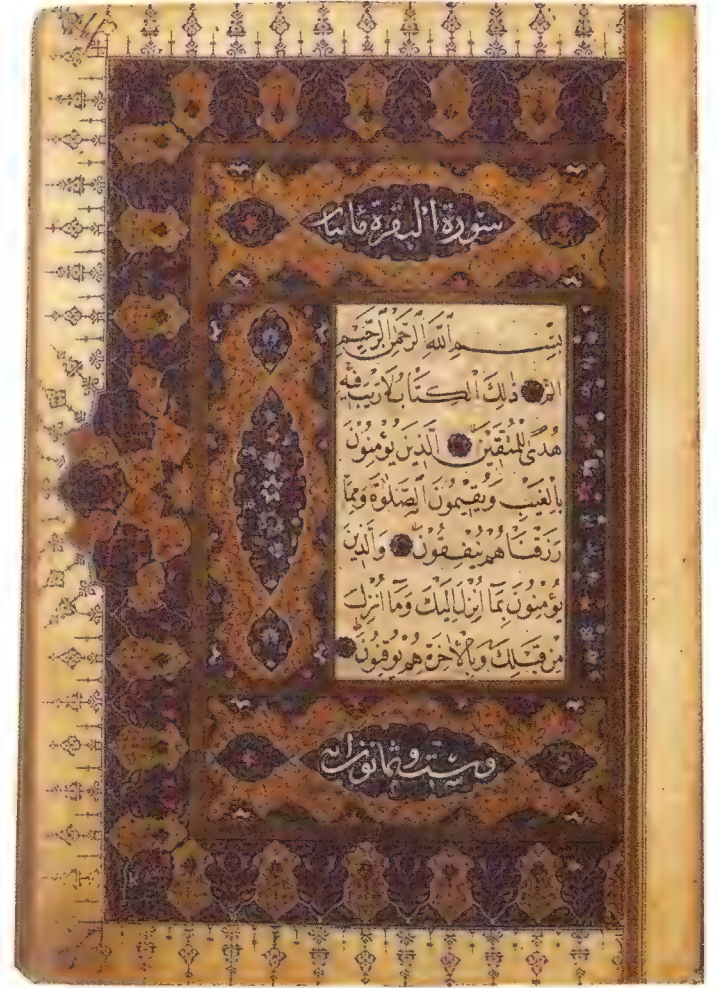 سورة البقرة مائتان
بِسْمِ اللَّهِ الرَّحْمَنِ الرَّحِيمِ
الم ذَلِكَ الْكِتَابُ لَا رَيْبَ فِيهِ
هُدًى لِلْمُتَّقِينَ الَّذِينَ يُؤْمِنُونَ
بِالْغَيْبِ وَيُقِيمُونَ الصَّلٰوةَ وَمِمَّا
رَزَقْنَاهُمْ يُنْفِقُونَ وَالَّذِينَ
يُؤْمِنُونَ بِمَا أُنْزِلَ إِلَيْكَ وَمَا أُنْزِلَ
مِنْ قَبْلِكَ وَبِالْآخِرَةِ هُمْ يُوقِنُونَ
وست وثمانون آية